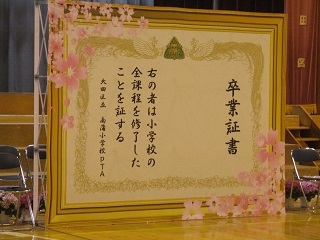 卒業証書
右の者は小学校の
全課程を修了した
ことを証する
大田区立 南蒲小学校PTA